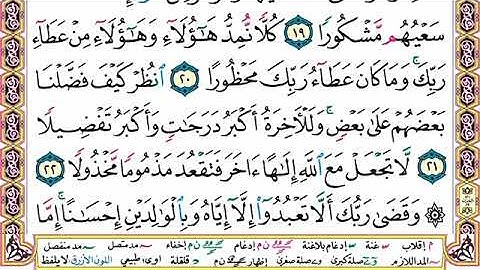 سَعْيُهُم مَّشْكُورًا ١٩ كُلًّا نُّمِدُّ هَٰٓؤُلَآءِ وَهَٰٓؤُلَآءِ مِنْ عَطَآءِ
رَبِّكَ ۚ وَمَا كَانَ عَطَآءُ رَبِّكَ مَحْظُورًا ٢٠ ٱنظُرْ كَيْفَ فَضَّلْنَا
بَعْضَهُمْ عَلَىٰ بَعْضٍ ۚ وَلَلْءَاخِرَةُ أَكْبَرُ دَرَجَٰتٍ وَأَكْبَرُ تَفْضِيلًا
٢١ لَّا تَجْعَلْ مَعَ ٱللَّهِ إِلَٰهًا ءَاخَرَ فَتَقْعُدَ مَذْمُومًا مَّخْذُولًا ٢٢
۞ وَقَضَىٰ رَبُّكَ أَلَّا تَعْبُدُوٓا۟ إِلَّآ إِيَّاهُ وَبِٱلْوَٰلِدَيْنِ إِحْسَٰنًا ۚ إِمَّا
م إقلاب س غنة س إدغام بلاغنة م ن و ي إدغام إخفاء مد متصل مد منفصل
المد اللازم صلة كبرى صلة صغرى إظهار قلقلة اللون الأزرق لا يلفظ